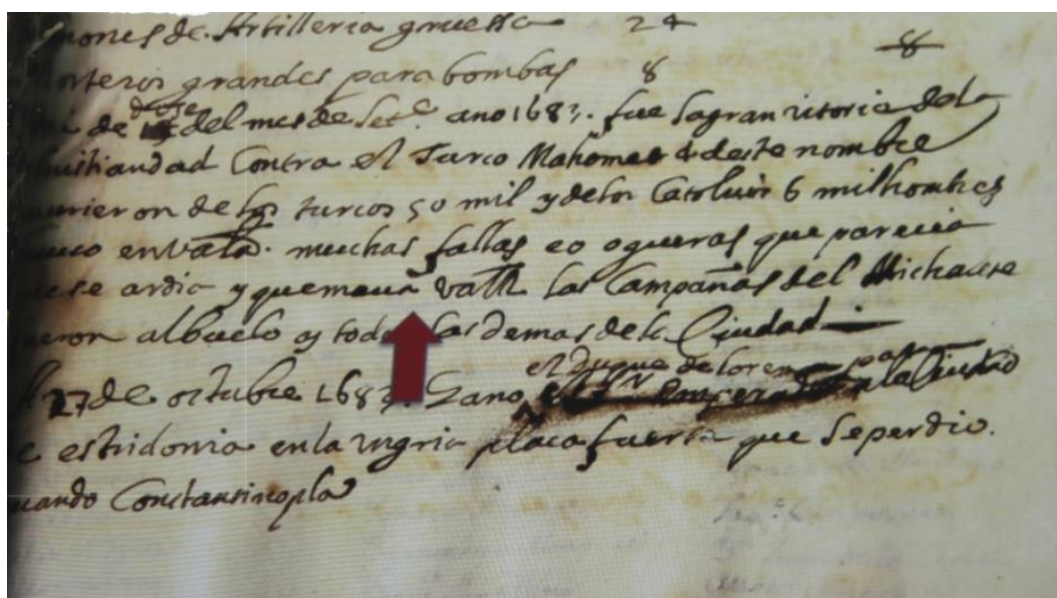 ones de Artilleria gruessa 24
8
orteros grandes para bombas 8
de doze del mes de Set.e ano 1683. fue la gran vitoria de la
chistiandad Contra el Turco Mahomet 4 deste nombre
murieron de los turcos 50 mil y de los Catolicos 6 mil hombres
uvo en Vala. muchas fallas eo ogueras que pareria
se ardia y quemava Vala las Campañas del Michalete
eron al buelo y todas las demas de la Ciudad
27 de octubre 1683. Gano el Duque de Lorena para la Ciudad
estridonia en la Ungria plaça fuerte que se perdio.
uando Constantinopla